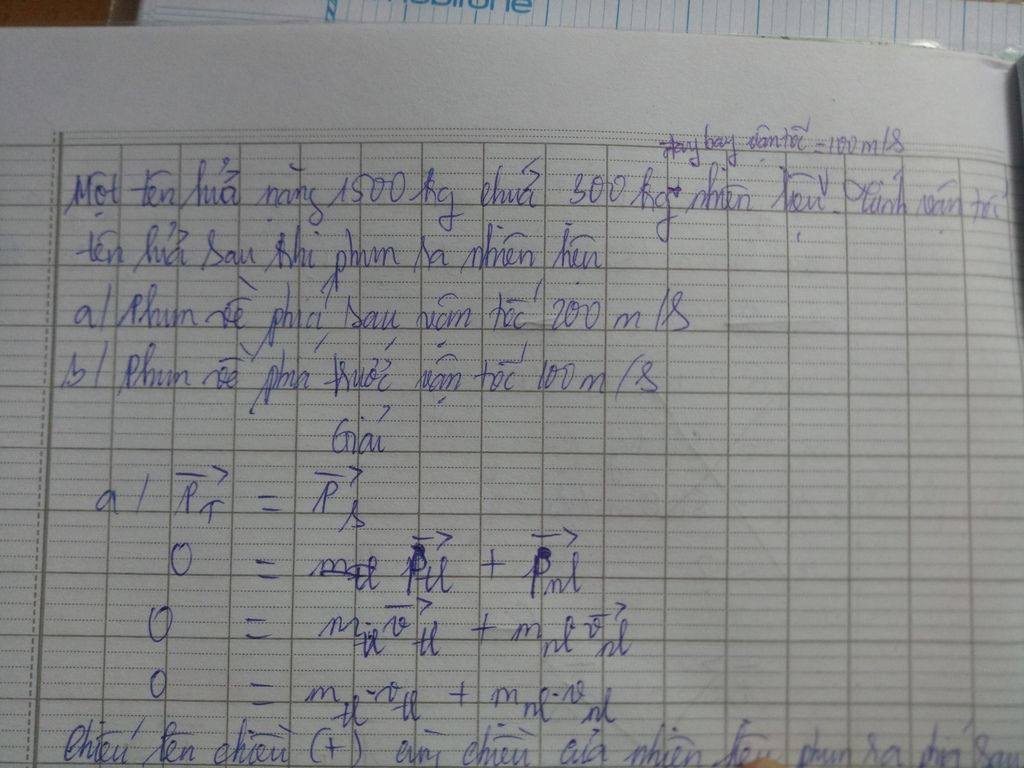 mobifone
đang bay vận tốc = 100 m/s
Một tên lửa nặng 1500 kg chứa 300 kg nhiên liệu. Tính vận tốc
tên lửa sau khi phun ra nhiên liệu
a/ Phun về phía sau vận tốc 200 m/s
b/ Phun về phía trước vận tốc 100 m/s
Giải
a/ P⃗_T = P⃗_s
0 = P⃗_tl + P⃗_nl
0 = m_tl v⃗_tl + m_nl v⃗_nl
0 = m_tl.v_tl + m_nl.v_nl
Chiếu lên chiều (+) chiều của nhiên liệu phun ra phía sau